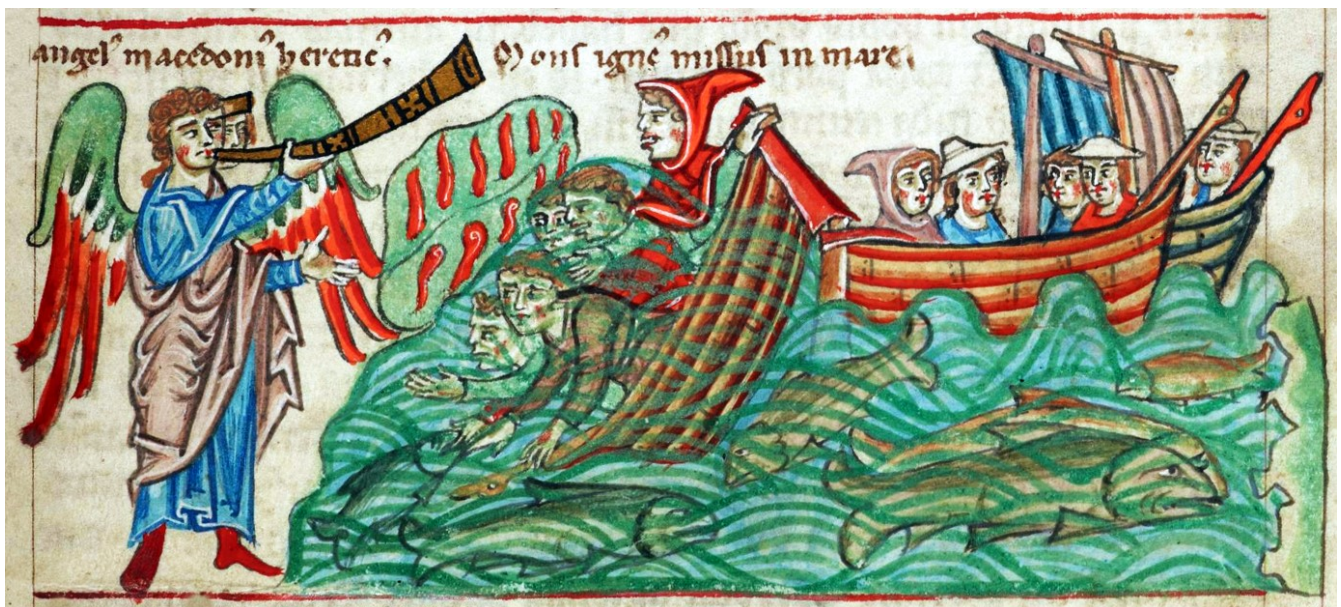 angelꝰ macedoniꝰ heretic'. Mons ignēꝰ missus in mare.